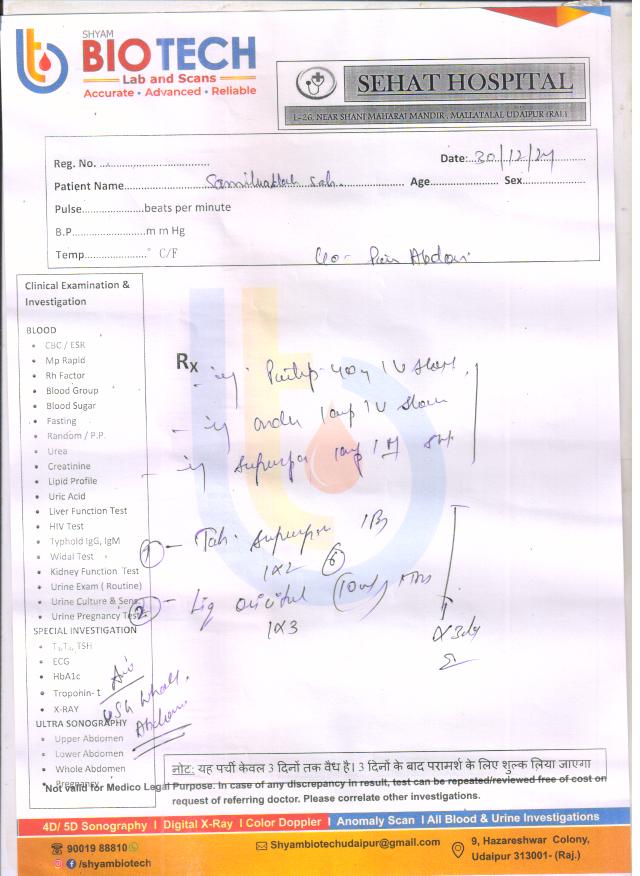 SHYAM
BIOTECH
Lab and Scans
Accurate • Advanced • Reliable
SEHAT HOSPITAL
L-26, NEAR SHANI MAHARAJ MANDIR, MALLATALAI, UDAIPUR (RAJ.)
Reg. No. ....................................
Date:..30/12/24
Patient Name.......... Age.................... Sex...................
Pulse.....................beats per minute
B.P.......................m m Hg
Temp.....................° C/F
C/o - Pain Abdomen
Clinical Examination & Investigation
BLOOD
• CBC / ESR
• Mp Rapid
• Rh Factor
• Blood Group
• Blood Sugar
• Fasting
• Random / P.P.
• Urea
• Creatinine
• Lipid Profile
• Uric Acid
• Liver Function Test
• HIV Test
• Typhoid IgG, IgM
• Widal Test
• Kidney Function Test
• Urine Exam ( Routine)
• Urine Culture & Sens
• Urine Pregnancy Test
SPECIAL INVESTIGATION
• T₃,T₄, TSH
• ECG
• HbA1c
• Tropohin- t
• X-RAY
ULTRA SONOGRAPHY
• Upper Abdomen
• Lower Abdomen
• Whole Abdomen
• Pregnancy
Rx
- inj. 40mg IV
- inj 1amp IV
- inj 1amp IM
① - Tab.
1x2 ⑥
② - Liq
1x3
x 3day
Adv
USG Whole
Abdomen
नोट: यह पर्ची केवल 3 दिनों तक वैध है। 3 दिनों के बाद परामर्श के लिए शुल्क लिया जाएगा
Not valid for Medico Legal Purpose. In case of any discrepancy in result, test can be repeated/reviewed free of cost on
request of referring doctor. Please correlate other investigations.
4D/ 5D Sonography I Digital X-Ray I Color Doppler I Anomaly Scan I All Blood & Urine Investigations
90019 88810
/shyambiotech
Shyambiotechudaipur@gmail.com
9, Hazareshwar Colony,
Udaipur 313001- (Raj.)